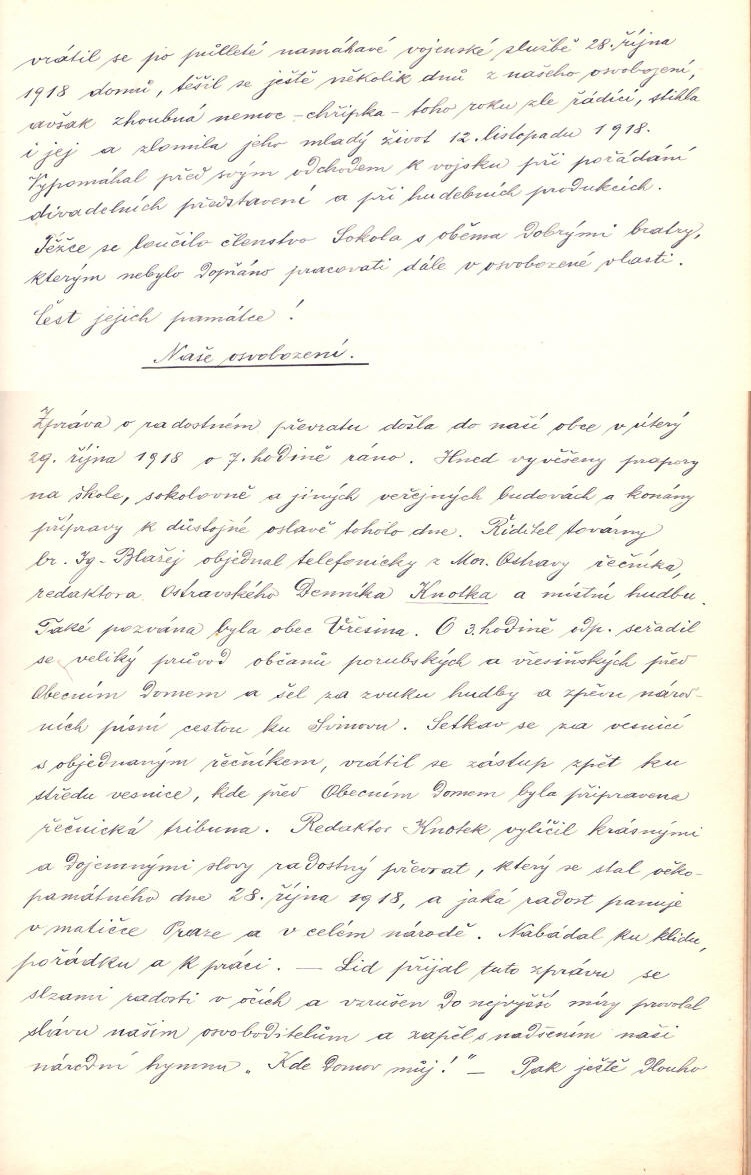 vrátil se po půlleté namáhavé vojenské službě 28. října
1918 domů, těšil se ještě několik dnů z našeho osvobození,
avšak zhoubná nemoc - chřipka - toho roku zle řádící, stihla
i jej a zlomila jeho mladý život 12. listopadu 1918.
Vypomáhal před svým odchodem k vojsku při pořádání
divadelních představení a při hudebních produkcích.
Těžce se loučilo členstvo Sokola s oběma dobrými bratry,
kterým nebylo dopřáno pracovati dále v osvobozené vlasti.
Čest jejich památce!
Naše osvobození.
Zpráva o radostném převratu došla do naší obce v úterý
29. října 1918 o 7. hodině ráno. Hned vyvěšeny prapory
na škole, sokolovně a jiných veřejných budovách a konány
přípravy k důstojné oslavě tohoto dne. Ředitel továrny
br. Ig. Blažej objednal telefonicky z Mor. Ostravy řečníka,
redaktora Ostravského Denníka Knotka a místní hudbu.
Také pozvána byla obec Vřesina. O 3. hodině odp. seřadil
se veliký průvod občanů porubských a vřesiňských před
Obecním Domem a šel za zvuku hudby a zpěvu národ-
ních písní cestou ku Svinovu. Setkav se za vesnicí
s objednaným řečníkem, vrátil se zástup zpět ku
středu vesnice, kde před Obecním domem byla připravena
řečnická tribuna. Redaktor Knotek vylíčil krásnými
a dojemnými slovy radostný převrat, který se stal věko-
památného dne 28. října 1918, a jaká radost panuje
v matičce Praze a v celém národě. Nabádal ku klidu,
pořádku a k práci. — Lid přijal tuto zprávu se
slzami radosti v očích a vzrušen do nejvyšší míry provolal
slávu našim osvoboditelům a zapěl s nadšením naši
národní hymnu „Kde domov můj!" — Pak ještě dlouho